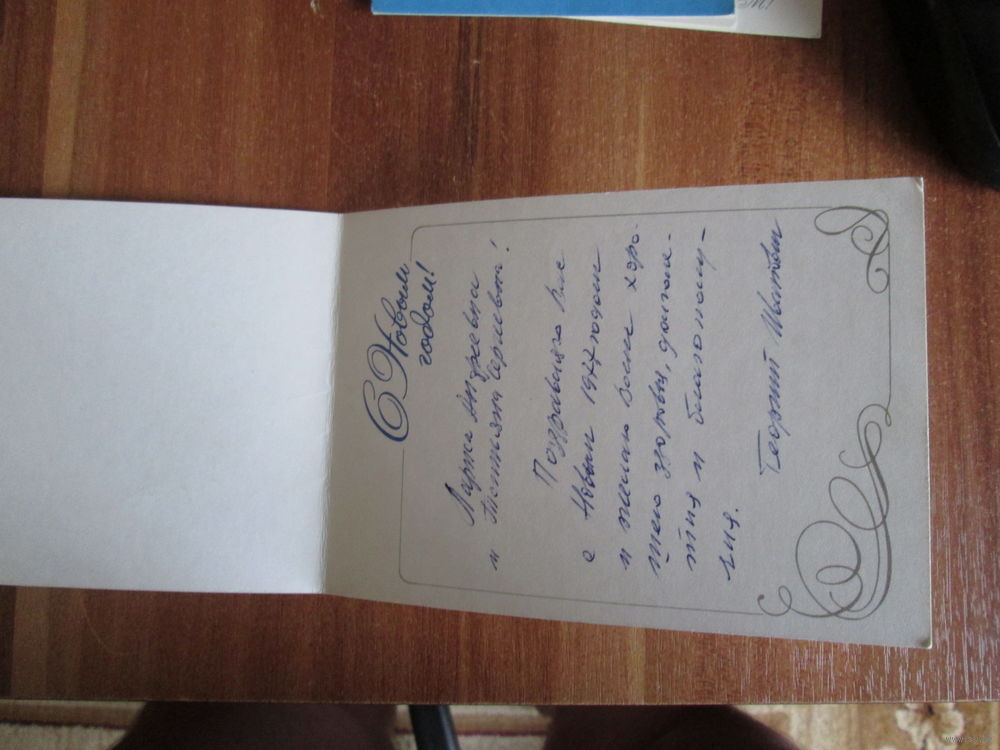 С Новым
годом!
Лариса Андреевна
и Татьяна Сергеевна!
Поздравляю Вас
с Новым 1977 годом
и желаю Вам хоро-
шего здоровья, долголе-
тия и благополу-
чия.
Георгий